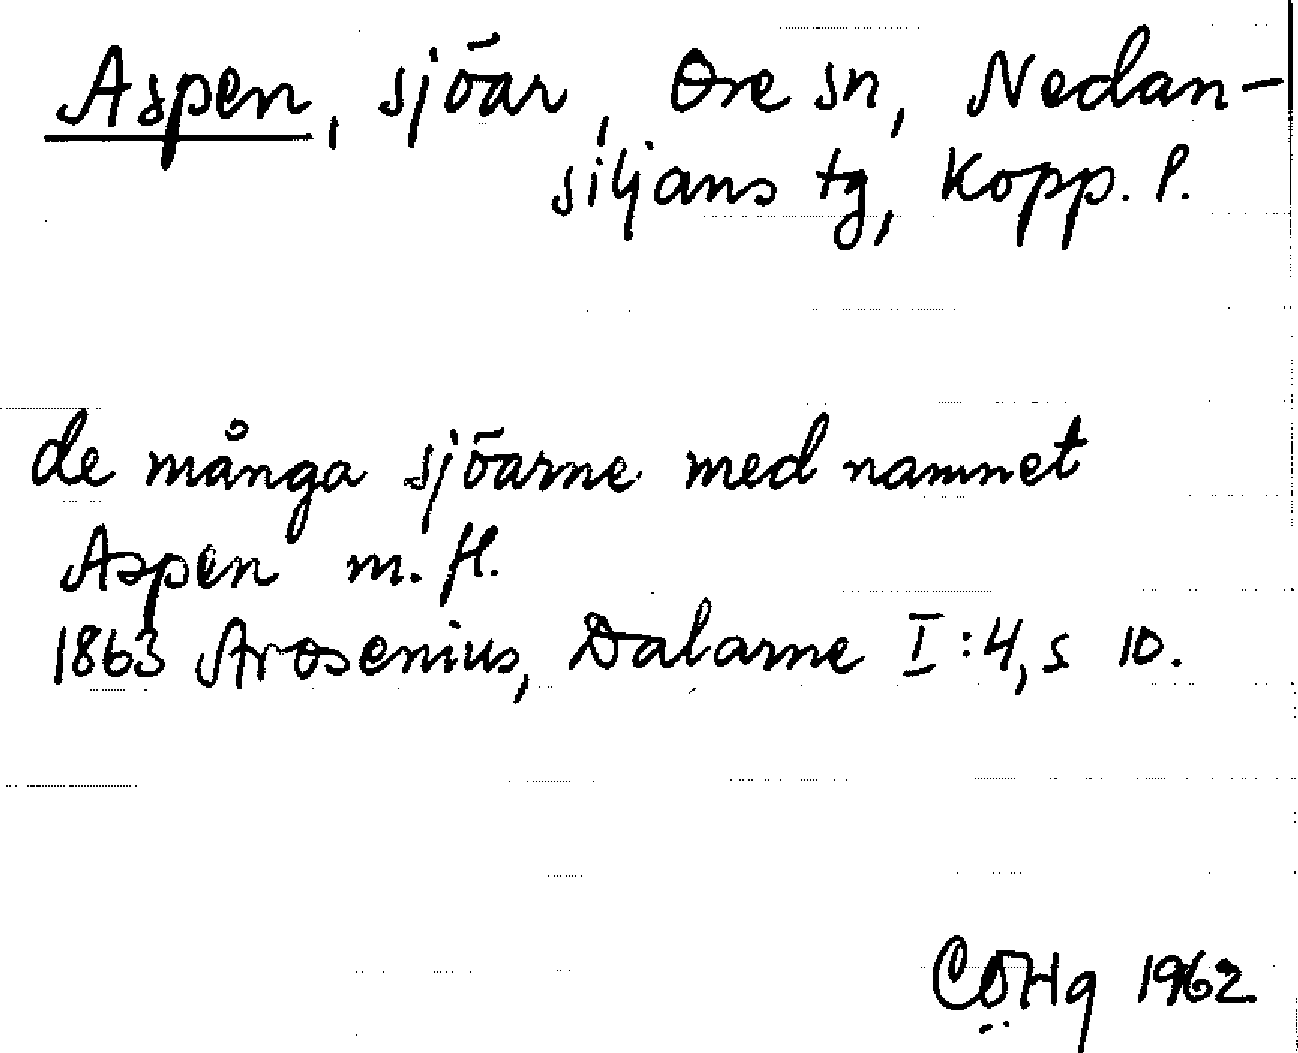 Aspen, sjöar, Ore sn, Nedan-
siljans tg, Kopp. l.
de många sjöarne med namnet
Aspen m. fl.
1863 Arosenius, Dalarne I:4, s 10.
CÖHg 1962